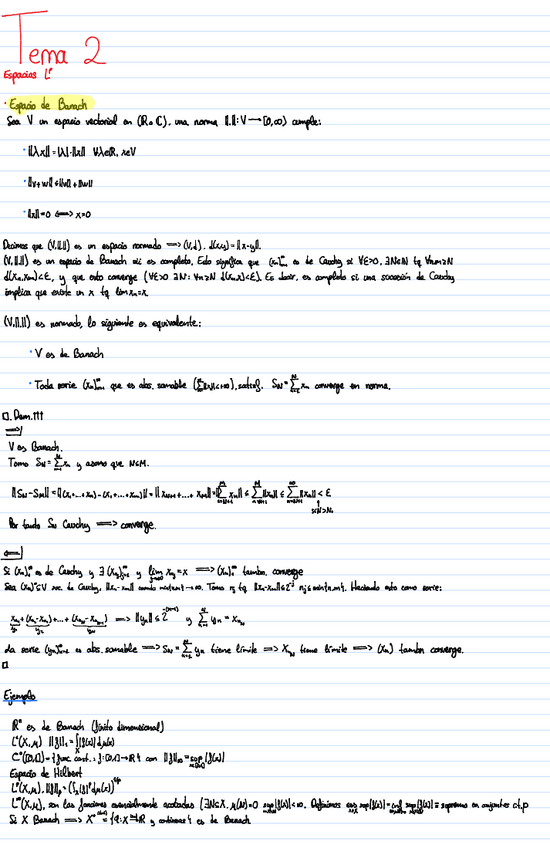 Tema 2
Espacios Lᵖ
· Espacio de Banach
Sea V un espacio vectorial en (ℝ o ℂ), una norma ||.||: V → [0,∞) cumple:
· ||λx|| = |λ|·||x|| ∀λ∈ℝ, x∈V
· ||v+w|| ≤ ||v|| + ||w||
· ||x|| = 0 ⟺ x=0
Decimos que (V,||.||) es un espacio normado ⟹ (V,d), d(x,y)=||x-y||.
(V,||.||) es un espacio de Banach si es completo. Esto significa que (xₙ)ₙ^∞ es de Cauchy si ∀ε>0, ∃N∈ℕ tq ∀n,m≥N
d(xₙ,xₘ)<ε, y que esto converge (∀ε>0 ∃N: ∀n≥N d(xₙ,x)<ε). Es decir, es completo si una sucesión de Cauchy
implica que existe un x tq lim xₙ=x.
(V,||.||) es normado, lo siguiente es equivalente:
· V es de Banach
· Toda serie (xₙ)ₙ₌₁^∞ que es abs. sumable (∑||xₙ||<+∞), satisf. S_N = ∑ₙ₌₁^N xₙ converge en norma.
□. Dem.!!!
⟹|
V es Banach.
Tomo S_N = ∑xₙ y asumo que N<M.
||S_N - S_M|| = ||(x₁+...+xₙ)-(x₁+...+xₘ)|| = ||x_{N+1}+...+x_M|| = ||∑_{n=N+1}^M xₙ|| ≤ ∑_{n=N+1}^M ||xₙ|| ≤ ∑_{n=N+1}^∞ ||xₙ|| < ε
si N>N₀
Por tanto S_N Cauchy ⟹ converge.
⟸|
Si (xₙ)ₙ^∞ es de Cauchy y ∃ (x_{n_j})_{j=1}^∞ y lim_{j→∞} x_{n_j} = x ⟹ (xₙ)ₙ^∞ tambn. converge
Sea (xₙ)^∞ ⊆V suc. de Cauchy, ||xₙ-xₘ|| cuando → ∞. Tomo n_j tq ||xₙ-xₘ||≤2^{-j} n_j≤min{n,m}. Haciendo esto como serie:
x_{n₁}+(x_{n₂}-x_{n₁})+...+(x_{n_N}-x_{n_{N-1}}) ⟹ ||yₙ|| ≤ 2^{-(n-1)} y ∑_{n=1}^N yₙ = x_{n_N}
y₁ y₂ y_N
da serie (yₙ)ₙ₌₁^∞ es abs. sumable ⟹ S_N = ∑_{n=1}^N yₙ tiene límite ⟹ x_{n_N} tiene límite ⟹ (xₙ) tambn converge.
□
Ejemplo
ℝⁿ es de Banach (finito dimensional)
L¹(X,μ) ||f||₁ = ∫|f(x)| dμ(x)
C⁰([0,1]) = {func cont. : f: [0,1]→ℝ} con ||f||_∞ = sup |f(x)|
Espacio de Hilbert
Lᵖ(X,μ), ||f||ₚ = (∫ₓ|f|ᵖ dμ(x))^{1/p}
L^∞(X,μ), son las funciones esencialmente acotadas (∃N⊂X, μ(N)=0 sup|f(x)|<∞. Definimos ess sup|f(x)| = inf sup|f(x)| = supremo en conjuntos c.t.p
Si X Banach ⟹ X* = {φ: X→ℝ y continuas} es de Banach